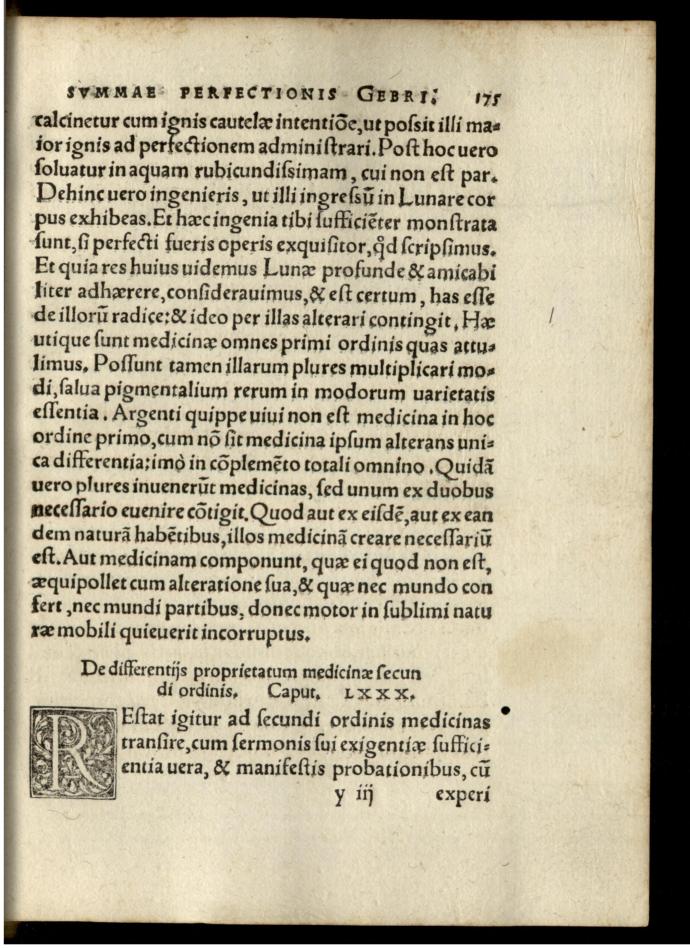 SVMMAE PERFECTIONIS GEBRI. 175
calcinetur cum ignis cautelæ intentiõe, ut possit illi ma-
ior ignis ad perfectionem administrari. Post hoc uero
soluatur in aquam rubicundissimam, cui non est par.
Dehinc uero ingenieris, ut illi ingressũ in Lunare cor
pus exhibeas. Et hæc ingenia tibi sufficiẽter monstrata
sunt, si perfecti fueris operis exquisitor, qđ scripsimus.
Et quia res huius uidemus Lunæ profunde & amicabi
liter adhærere, considerauimus, & est certum, has esse
de illorũ radice: & ideo per illas alterari contingit. Hæ
utique sunt medicinæ omnes primi ordinis quas attu-
limus. Possunt tamen illarum plures multiplicari mo-
di, salua pigmentalium rerum in modorum uarietatis
essentia. Argenti quippe uiui non est medicina in hoc
ordine primo, cum nõ sit medicina ipsum alterans uni-
ca differentia; imò in cõplemẽto totali omnino. Quidã
uero plures inuenerũt medicinas, sed unum ex duobus
necessario euenire cõtigit. Quod aut ex eisdẽ, aut ex ean
dem naturã habẽtibus, illos medicinã creare necessariũ
est. Aut medicinam componunt, quæ ei quod non est,
æquipollet cum alteratione sua, & quæ nec mundo con
fert, nec mundi partibus, donec motor in sublimi natu
ræ mobili quieuerit incorruptus.
De differentijs proprietatum medicinæ secun
di ordinis. Caput. LXXX.
REstat igitur ad secundi ordinis medicinas
transire, cum sermonis sui exigentiæ suffici-
entia uera, & manifestis probationibus, cũ
y iij experi